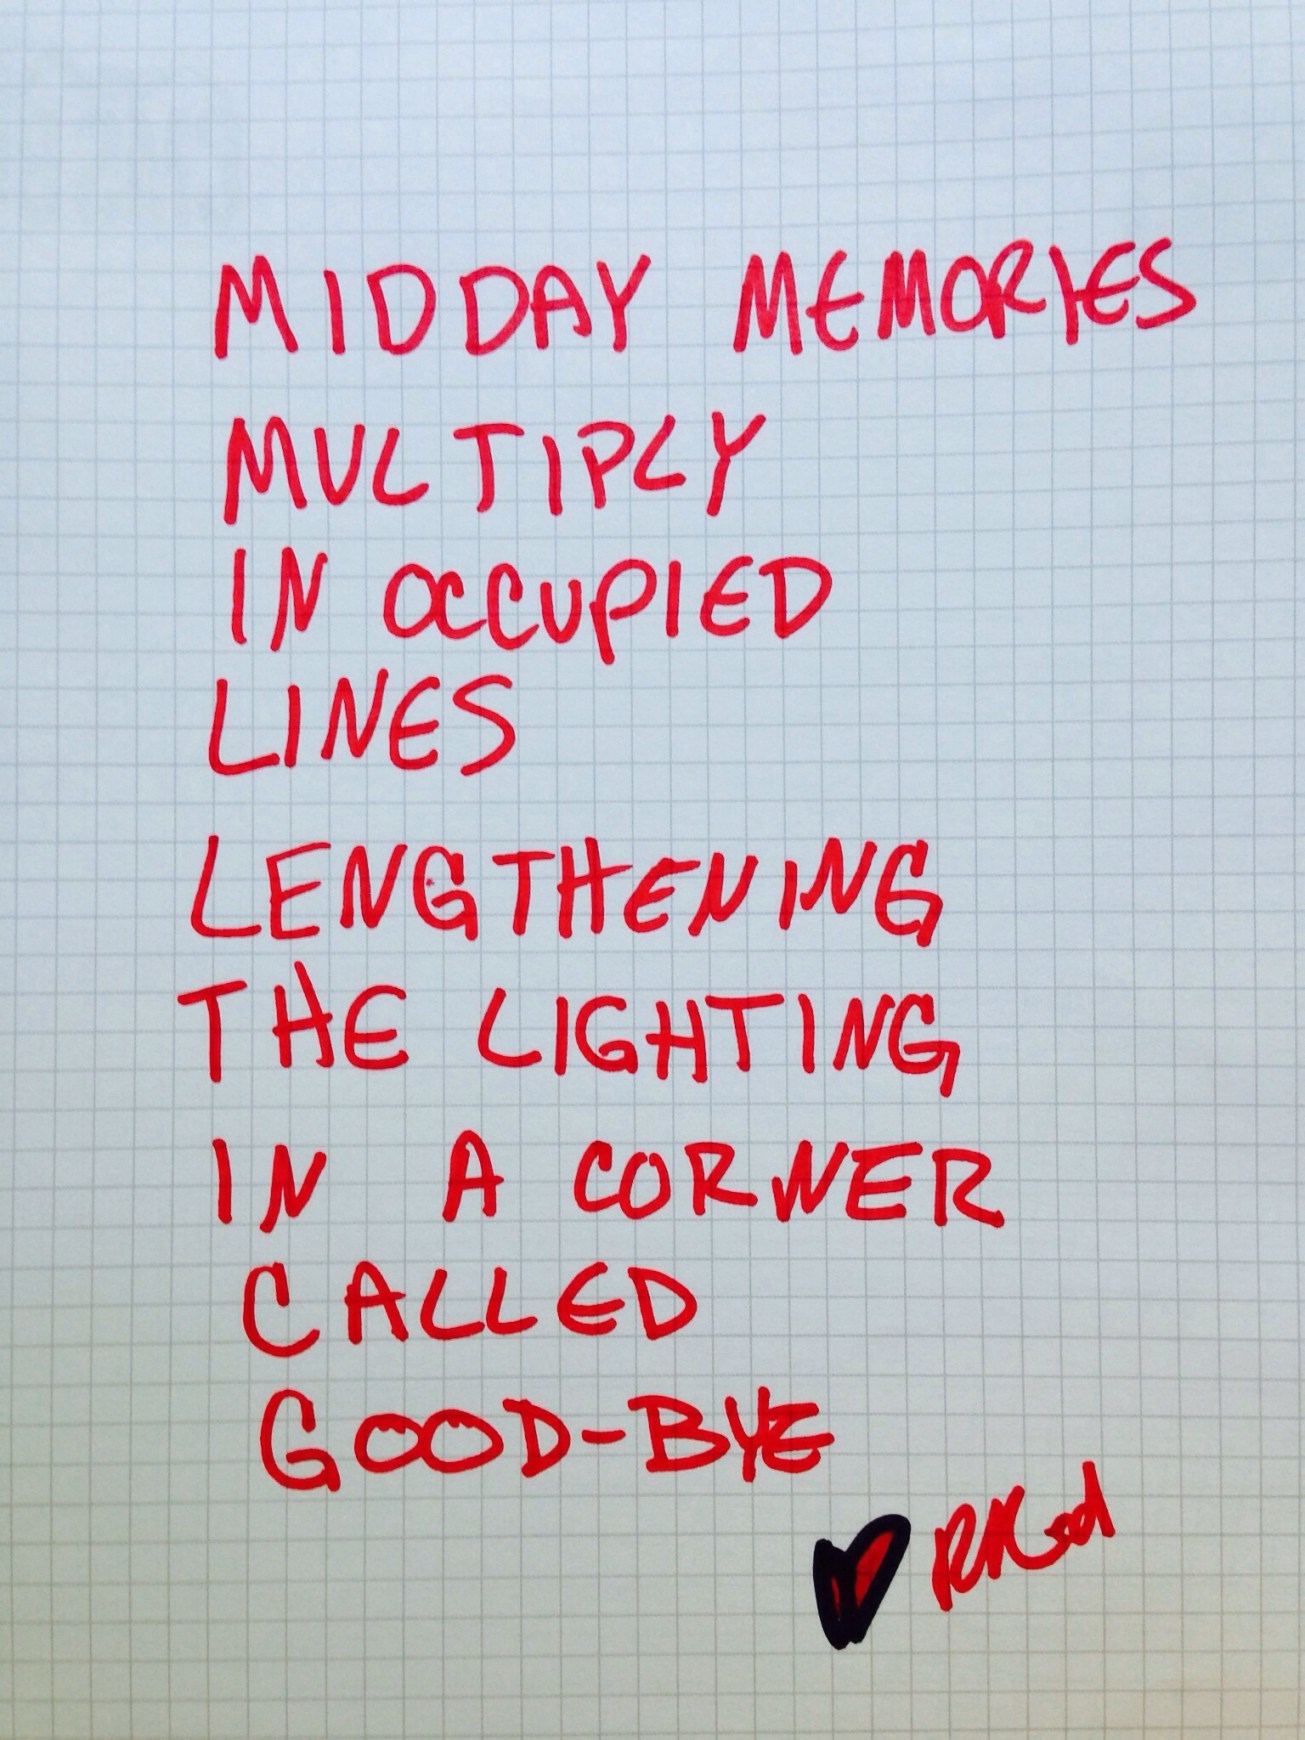 MIDDAY MEMORIES
MULTIPLY
IN OCCUPIED
LINES
LENGTHENING
THE LIGHTING
IN A CORNER
CALLED
GOOD-BYE